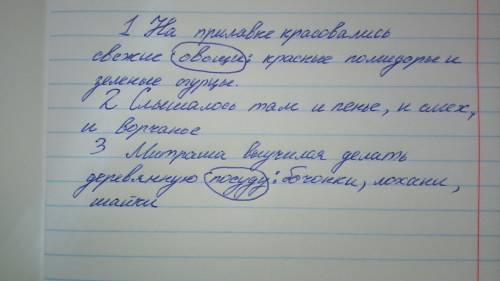 1 На прилавке красовались
свежие овощи: красные помидоры и
зеленые огурцы.
2 Слышалось там и пенье, и смех,
и ворчанье
3 Митраша выучился делать
деревянную посуду: бочонки, лохани,
шайки